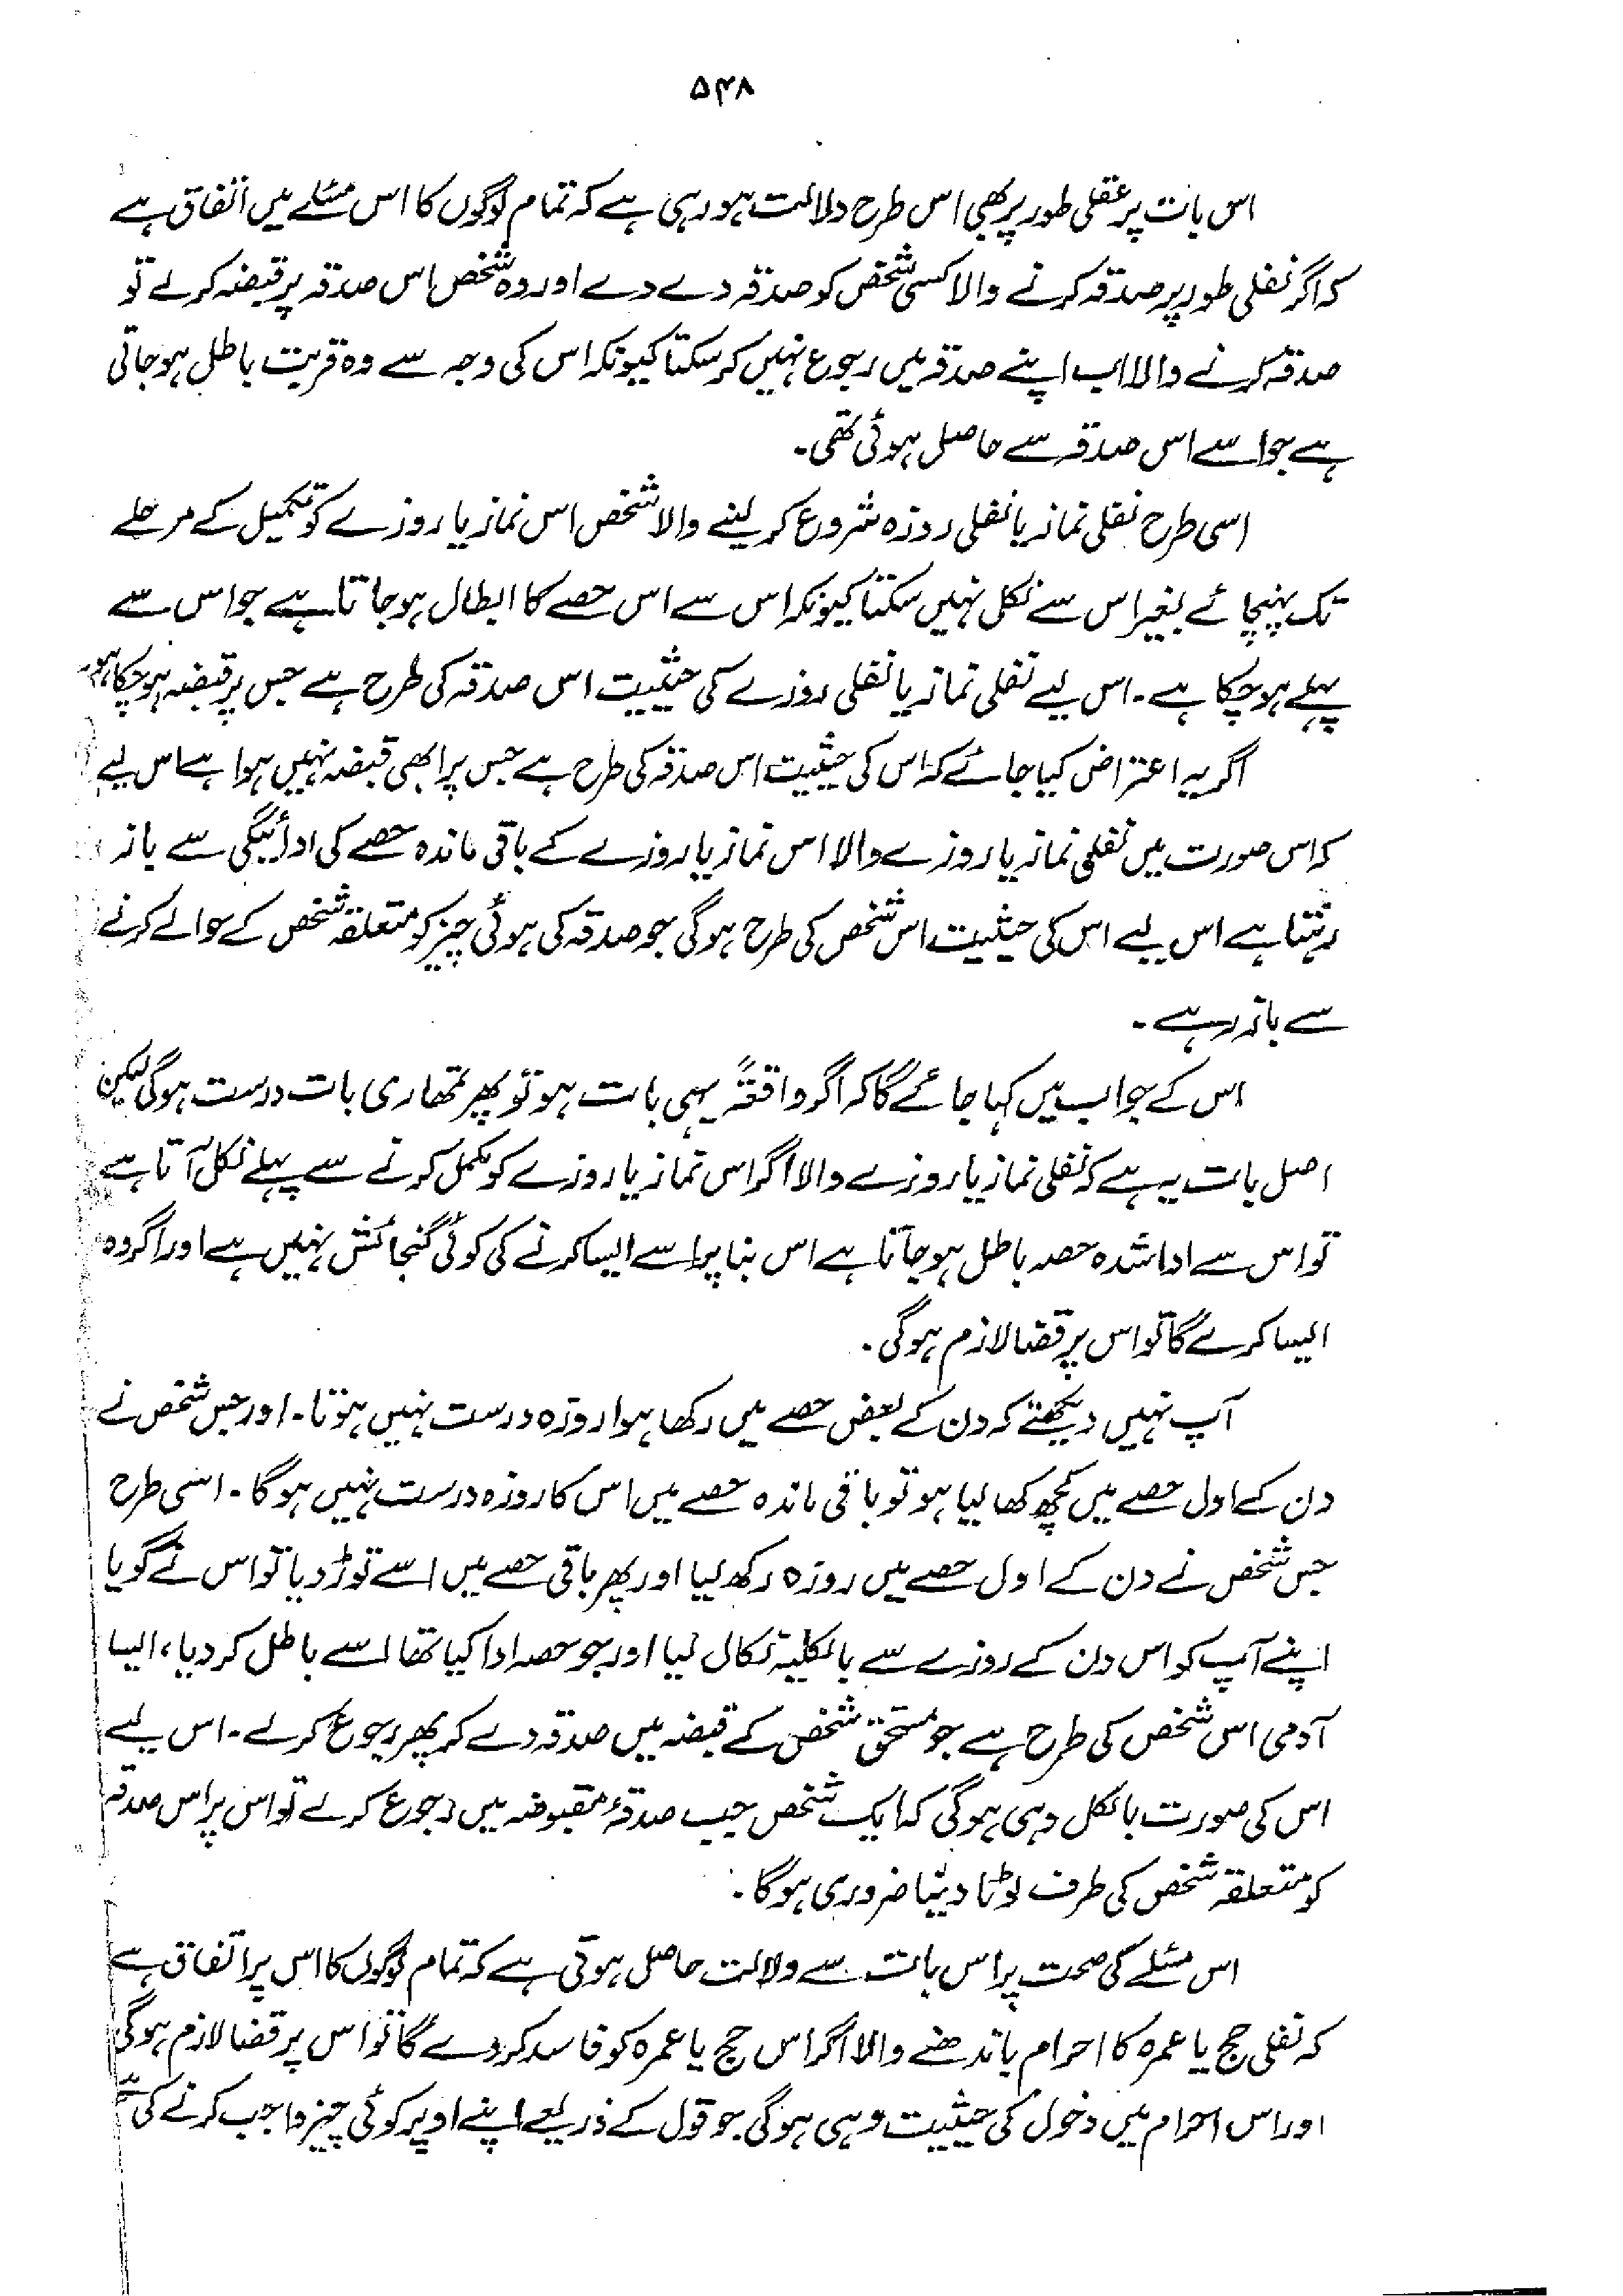 ۵۴۸
اس بات پر عقلی طور پر بھی اس طرح دلالت ہو رہی ہے کہ تمام لوگوں کا اس مسئلے میں اتفاق ہے
کہ اگر نفلی طور پر صدقہ کرنے والا کسی شخص کو صدقہ دے دے اور وہ شخص اس صدقہ پر قبضہ کرلے تو
صدقہ کرنے والا اب اپنے صدقہ میں رجوع نہیں کرسکتا کیونکہ اس کی وجہ سے وہ قربت باطل ہوجاتی
ہے جو اسے اس صدقہ سے حاصل ہوئی تھی۔
اسی طرح نفلی نماز یا نفلی روزہ شروع کر لینے والا شخص اس نماز یا روزے کو تکمیل کے مرحلے
تک پہنچائے بغیر اس سے نکل نہیں سکتا کیونکہ اس سے اس حصے کا ابطال ہوجاتا ہے جو اس سے
پہلے ہوچکا ہے۔ اس لیے نفلی نماز یا نفلی روزے کی حیثیت اس صدقہ کی طرح ہے جس پر قبضہ ہوچکا ہو۔
اگر یہ اعتراض کیا جائے کہ اس کی حیثیت اس صدقہ کی طرح ہے جس پر ابھی قبضہ نہیں ہوا ہے اس لیے
کہ اس صورت میں نفلی نماز یا روزے والا اس نماز یا روزے کے باقی ماندہ حصے کی ادائیگی سے باز
رہتا ہے اس لیے اس کی حیثیت اس شخص کی طرح ہوگی جو صدقہ کی ہوئی چیز کو متعلقہ شخص کے حوالے کرنے
سے باز رہے۔
اس کے جواب میں کہا جائے گا کہ اگر واقعۃً یہی بات ہو تو پھر تمھاری بات درست ہوگی لیکن
اصل بات یہ ہے کہ نفلی نماز یا روزے والا اگر اس نماز یا روزے کو مکمل کرنے سے پہلے نکل آتا ہے
تو اس سے ادا شدہ حصہ باطل ہوجاتا ہے اس بنا پر اسے ایسا کرنے کی کوئی گنجائش نہیں ہے اور اگر وہ
ایسا کرے گا تو اس پر قضا لازم ہوگی۔
آپ نہیں دیکھتے کہ دن کے بعض حصے میں رکھا ہوا روزہ درست نہیں ہوتا۔ اور جس شخص نے
دن کے اول حصے میں کچھ کھا لیا ہو تو باقی ماندہ حصے میں اس کا روزہ درست نہیں ہوگا۔ اسی طرح
جس شخص نے دن کے اول حصے میں روزہ رکھ لیا اور پھر باقی حصے میں اسے توڑ دیا تو اس نے گویا
اپنے آپ کو اس دن کے روزے سے بالکلیۃ نکال لیا اور جو حصہ ادا کیا تھا اسے باطل کردیا، ایسا
آدمی اس شخص کی طرح ہے جو مستحق شخص کے قبضہ میں صدقہ دے کر پھر رجوع کرلے۔ اس لیے
اس کی صورت بالکل وہی ہوگی کہ ایک شخص جب صدقۂ مقبوضہ میں رجوع کرلے تو اس پر اس صدقہ
کو متعلقہ شخص کی طرف لوٹا دینا ضروری ہوگا۔
اس مسئلے کی صحت پر اس بات سے دلالت حاصل ہوتی ہے کہ تمام لوگوں کا اس پر اتفاق ہے
کہ نفلی حج یا عمرہ کا احرام باندھنے والا اگر اس حج یا عمرہ کو فاسد کردے گا تو اس پر قضا لازم ہوگی
اور اس احرام میں دخول کی حیثیت وہی ہوگی جو قول کے ذریعے اپنے اوپر کوئی چیز واجب کرنے کی ہے